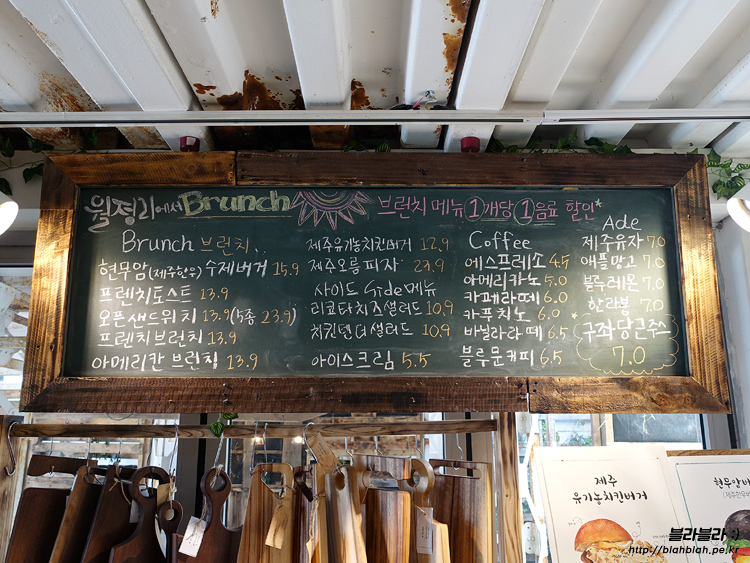 월정리에서 Brunch
브런치 메뉴 ①개당 ①음료 할인*
Brunch 브런치
현무암(제주한우) 수제버거 15.9
프렌치토스트 13.9
오픈샌드위치 13.9 (5종 23.9)
프렌치브런치 13.9
아메리칸 브런치 13.9
제주유기농치킨버거 12.9
제주오름피자 23.9
사이드 Side 메뉴
리코타치즈샐러드 10.9
치킨텐더샐러드 10.9
아이스크림 5.5
Coffee
에스프레소 4.5
아메리카노 5.0
카페라떼 6.0
카푸치노 6.0
바닐라라떼 6.5
블루문커피 6.5
Ade
제주유자 7.0
애플망고 7.0
블루레몬 7.0
한라봉 7.0
구좌당근주스
7.0
제주
유기농치킨버거
현무암버
블라블라 :)
http://blahblah.pe.kr